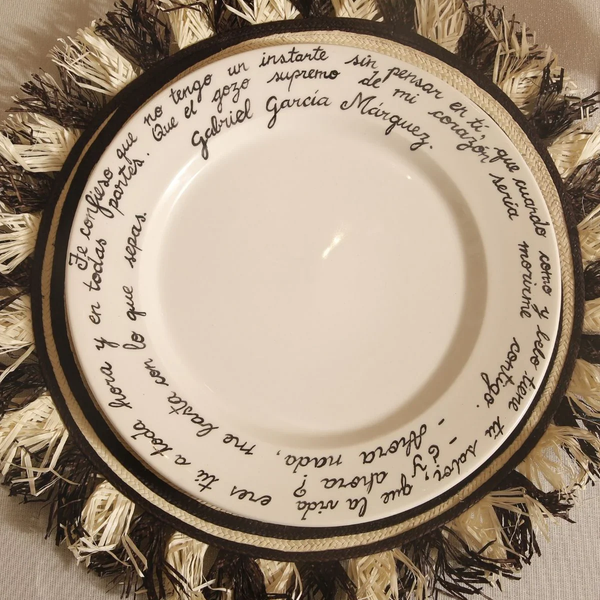 Te confieso que no tengo un instante sin pensar en ti, que cuando como y bebo tiene tu sabor, que la vida eres tu a toda hora y en todas partes. Que el gozo supremo de mi corazón seria morirme contigo.
- ¿y ahora?
- Ahora nada, me basta con lo que sepas.
Gabriel García Márquez.